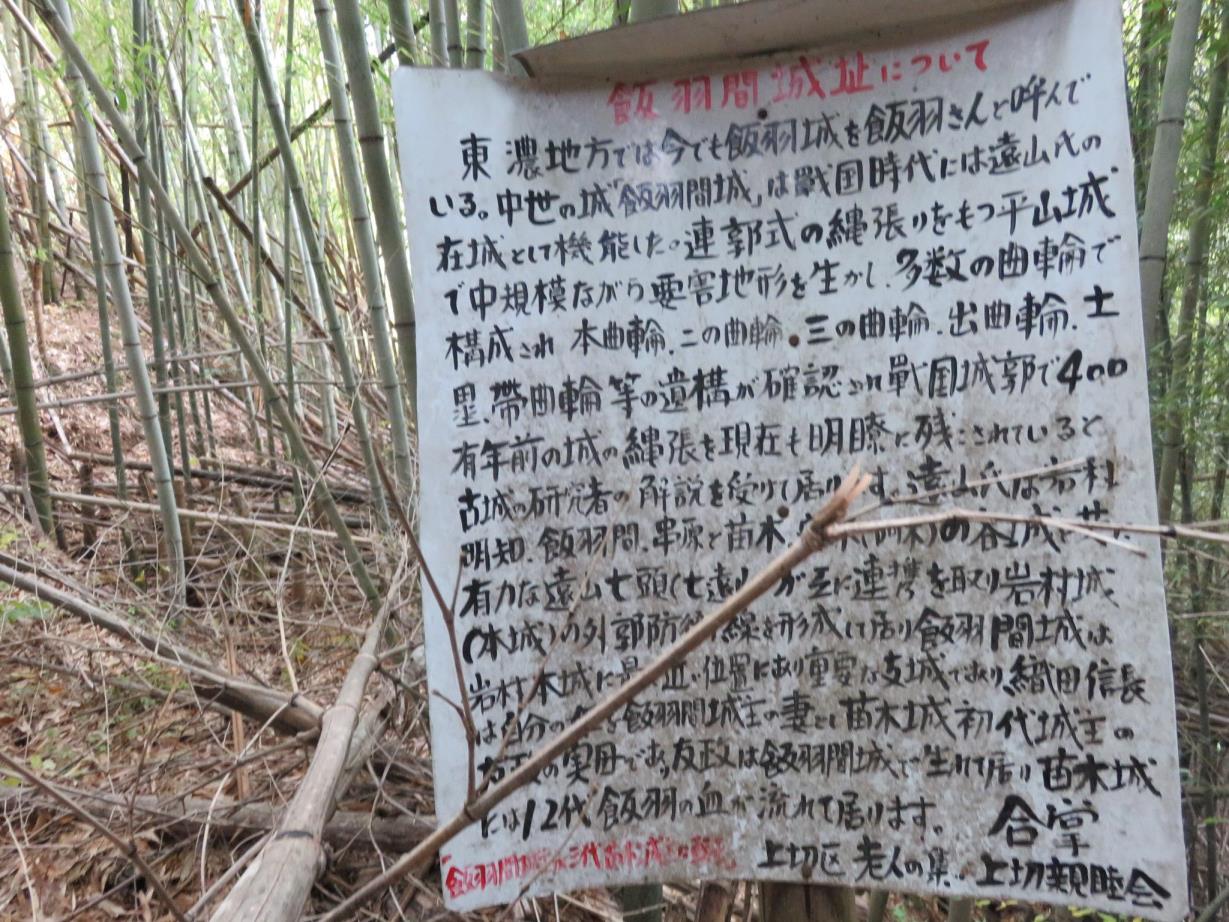 飯羽間城址について
東濃地方では今でも飯羽城を飯羽さんと呼んで
いる。中世の城「飯羽間城」は戰国時代には遠山氏の
在城として機能した。連郭式の縄張りをもつ平山城
で中規模ながら要害地形を生かし、多数の曲輪で
構成され 本曲輪、二の曲輪・三の曲輪、出曲輪、土
塁、帯曲輪等の遺構が確認され戰国城郭で400
有年前の城の縄張を現在も明瞭に残こされていると
古城の研究者の解説を受けて居ります。遠山氏は岩村
明知、飯羽間、串原と苗木、の各城を
有力な遠山七頭(七遠山 が互に連携を取り岩村城
(本城)の外郭防衛線を形成して居り飯羽間城は
岩村本城に最も近い位置にあり重要な支城であり、織田信長
は自分の を飯羽間城主の妻とし苗木城初代城主の
友政の実母であり、友政は飯羽間城で生れて居り苗木城
には12代飯羽の血が流れて居ります。 合掌
飯羽間 上切区 老人の集 上切親睦会